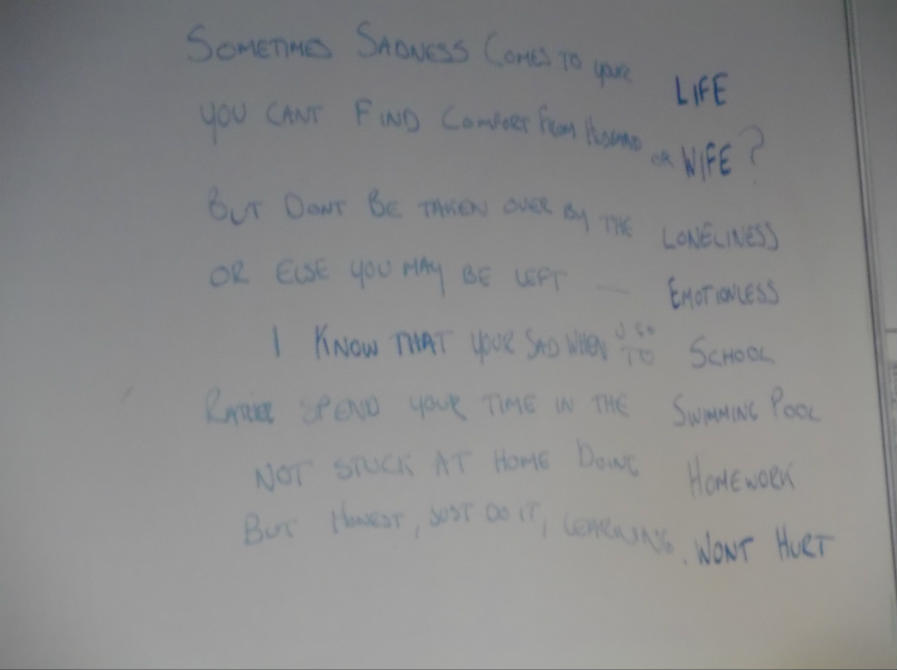 SOMETIMES SADNESS COMES TO your LIFE
YOU CANT FIND COMFORT FROM HUSBAND OR WIFE?
BUT DONT BE TAKEN OVER BY THE LONELINESS
OR ELSE YOU MAY BE LEFT — EMOTIONLESS
I KNOW THAT YOUR SAD WHEN U GO TO SCHOOL
RATHER SPEND YOUR TIME IN THE SWIMMING POOL
NOT STUCK AT HOME DOING HOMEWORK
BUT HONEST, JUST DO IT, LEARNING WONT HURT